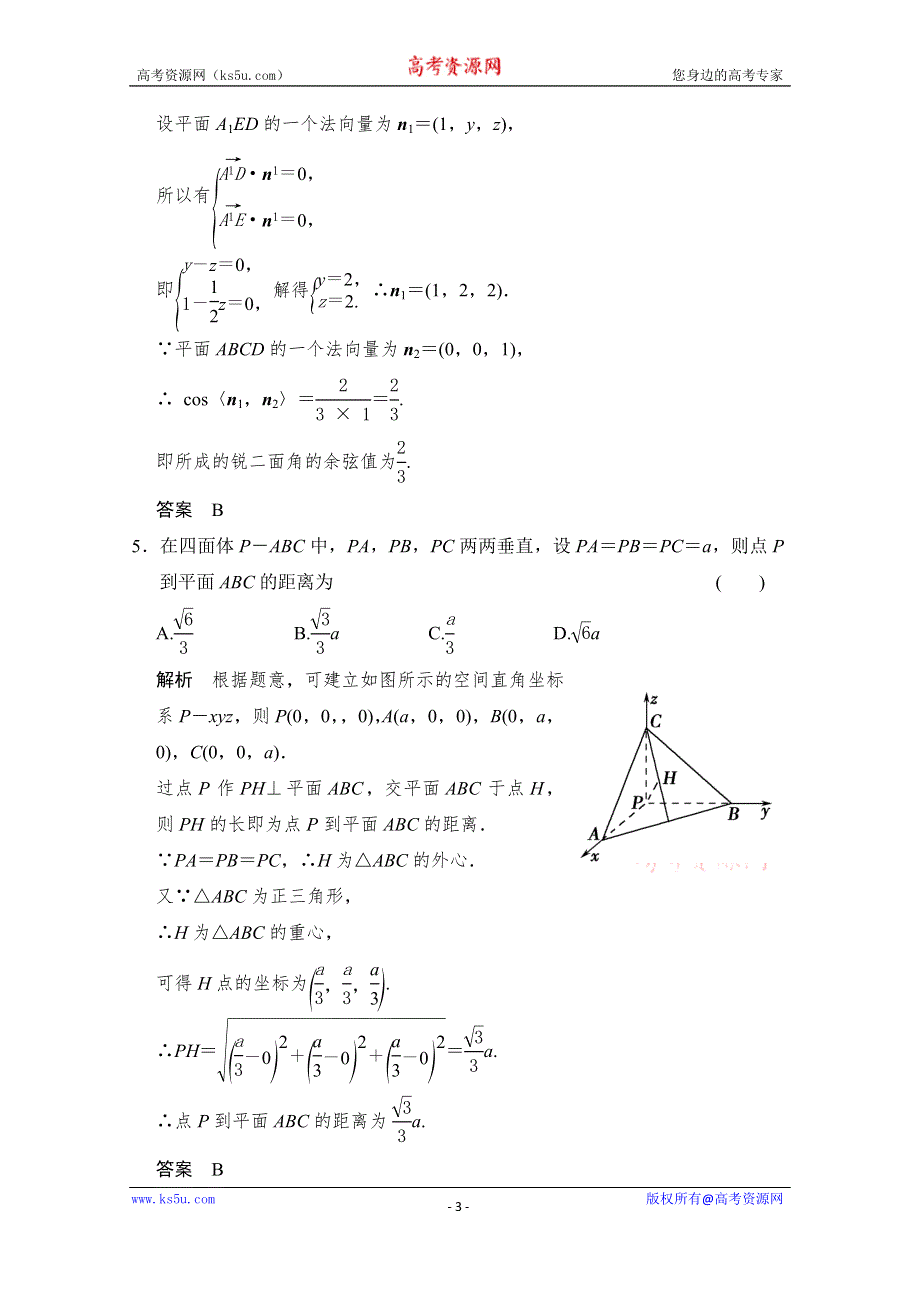 高考资源网（ks5u.com）
高考资源网
您身边的高考专家
设平面 A₁ED 的一个法向量为 n₁＝(1，y，z)，
所以有{A¹D→·n¹＝0，
A¹E→·n¹＝0，
即{y－z＝0，1－1/2z＝0，解得{y＝2，z＝2. ∴n₁＝(1，2，2)．
∵平面 ABCD 的一个法向量为 n₂＝(0，0，1)，
∴ cos〈n₁，n₂〉＝2/(3 × 1)＝2/3.
即所成的锐二面角的余弦值为2/3.
答案　B
5．在四面体 P－ABC 中，PA，PB，PC 两两垂直，设 PA＝PB＝PC＝a，则点 P
到平面 ABC 的距离为 (　　)
A.√6/3　B.√3/3a　C.a/3　D.√6a
解析　根据题意，可建立如图所示的空间直角坐标
系 P－xyz，则 P(0，0，，0)，A(a，0，0)，B(0，a，
0)，C(0，0，a)．
过点 P 作 PH⊥平面 ABC，交平面 ABC 于点 H，
则 PH 的长即为点 P 到平面 ABC 的距离．
∵PA＝PB＝PC，∴H 为△ABC 的外心．
又∵△ABC 为正三角形，
∴H 为△ABC 的重心，
可得 H 点的坐标为(a/3，a/3，a/3).
∴PH＝√((a/3－0)²＋(a/3－0)²＋(a/3－0)²)＝√3/3a.
∴点 P 到平面 ABC 的距离为√3/3a.
答案　B
z
C
H
P
B
y
A
x
www.ks5u.com
- 3 -
版权所有@高考资源网